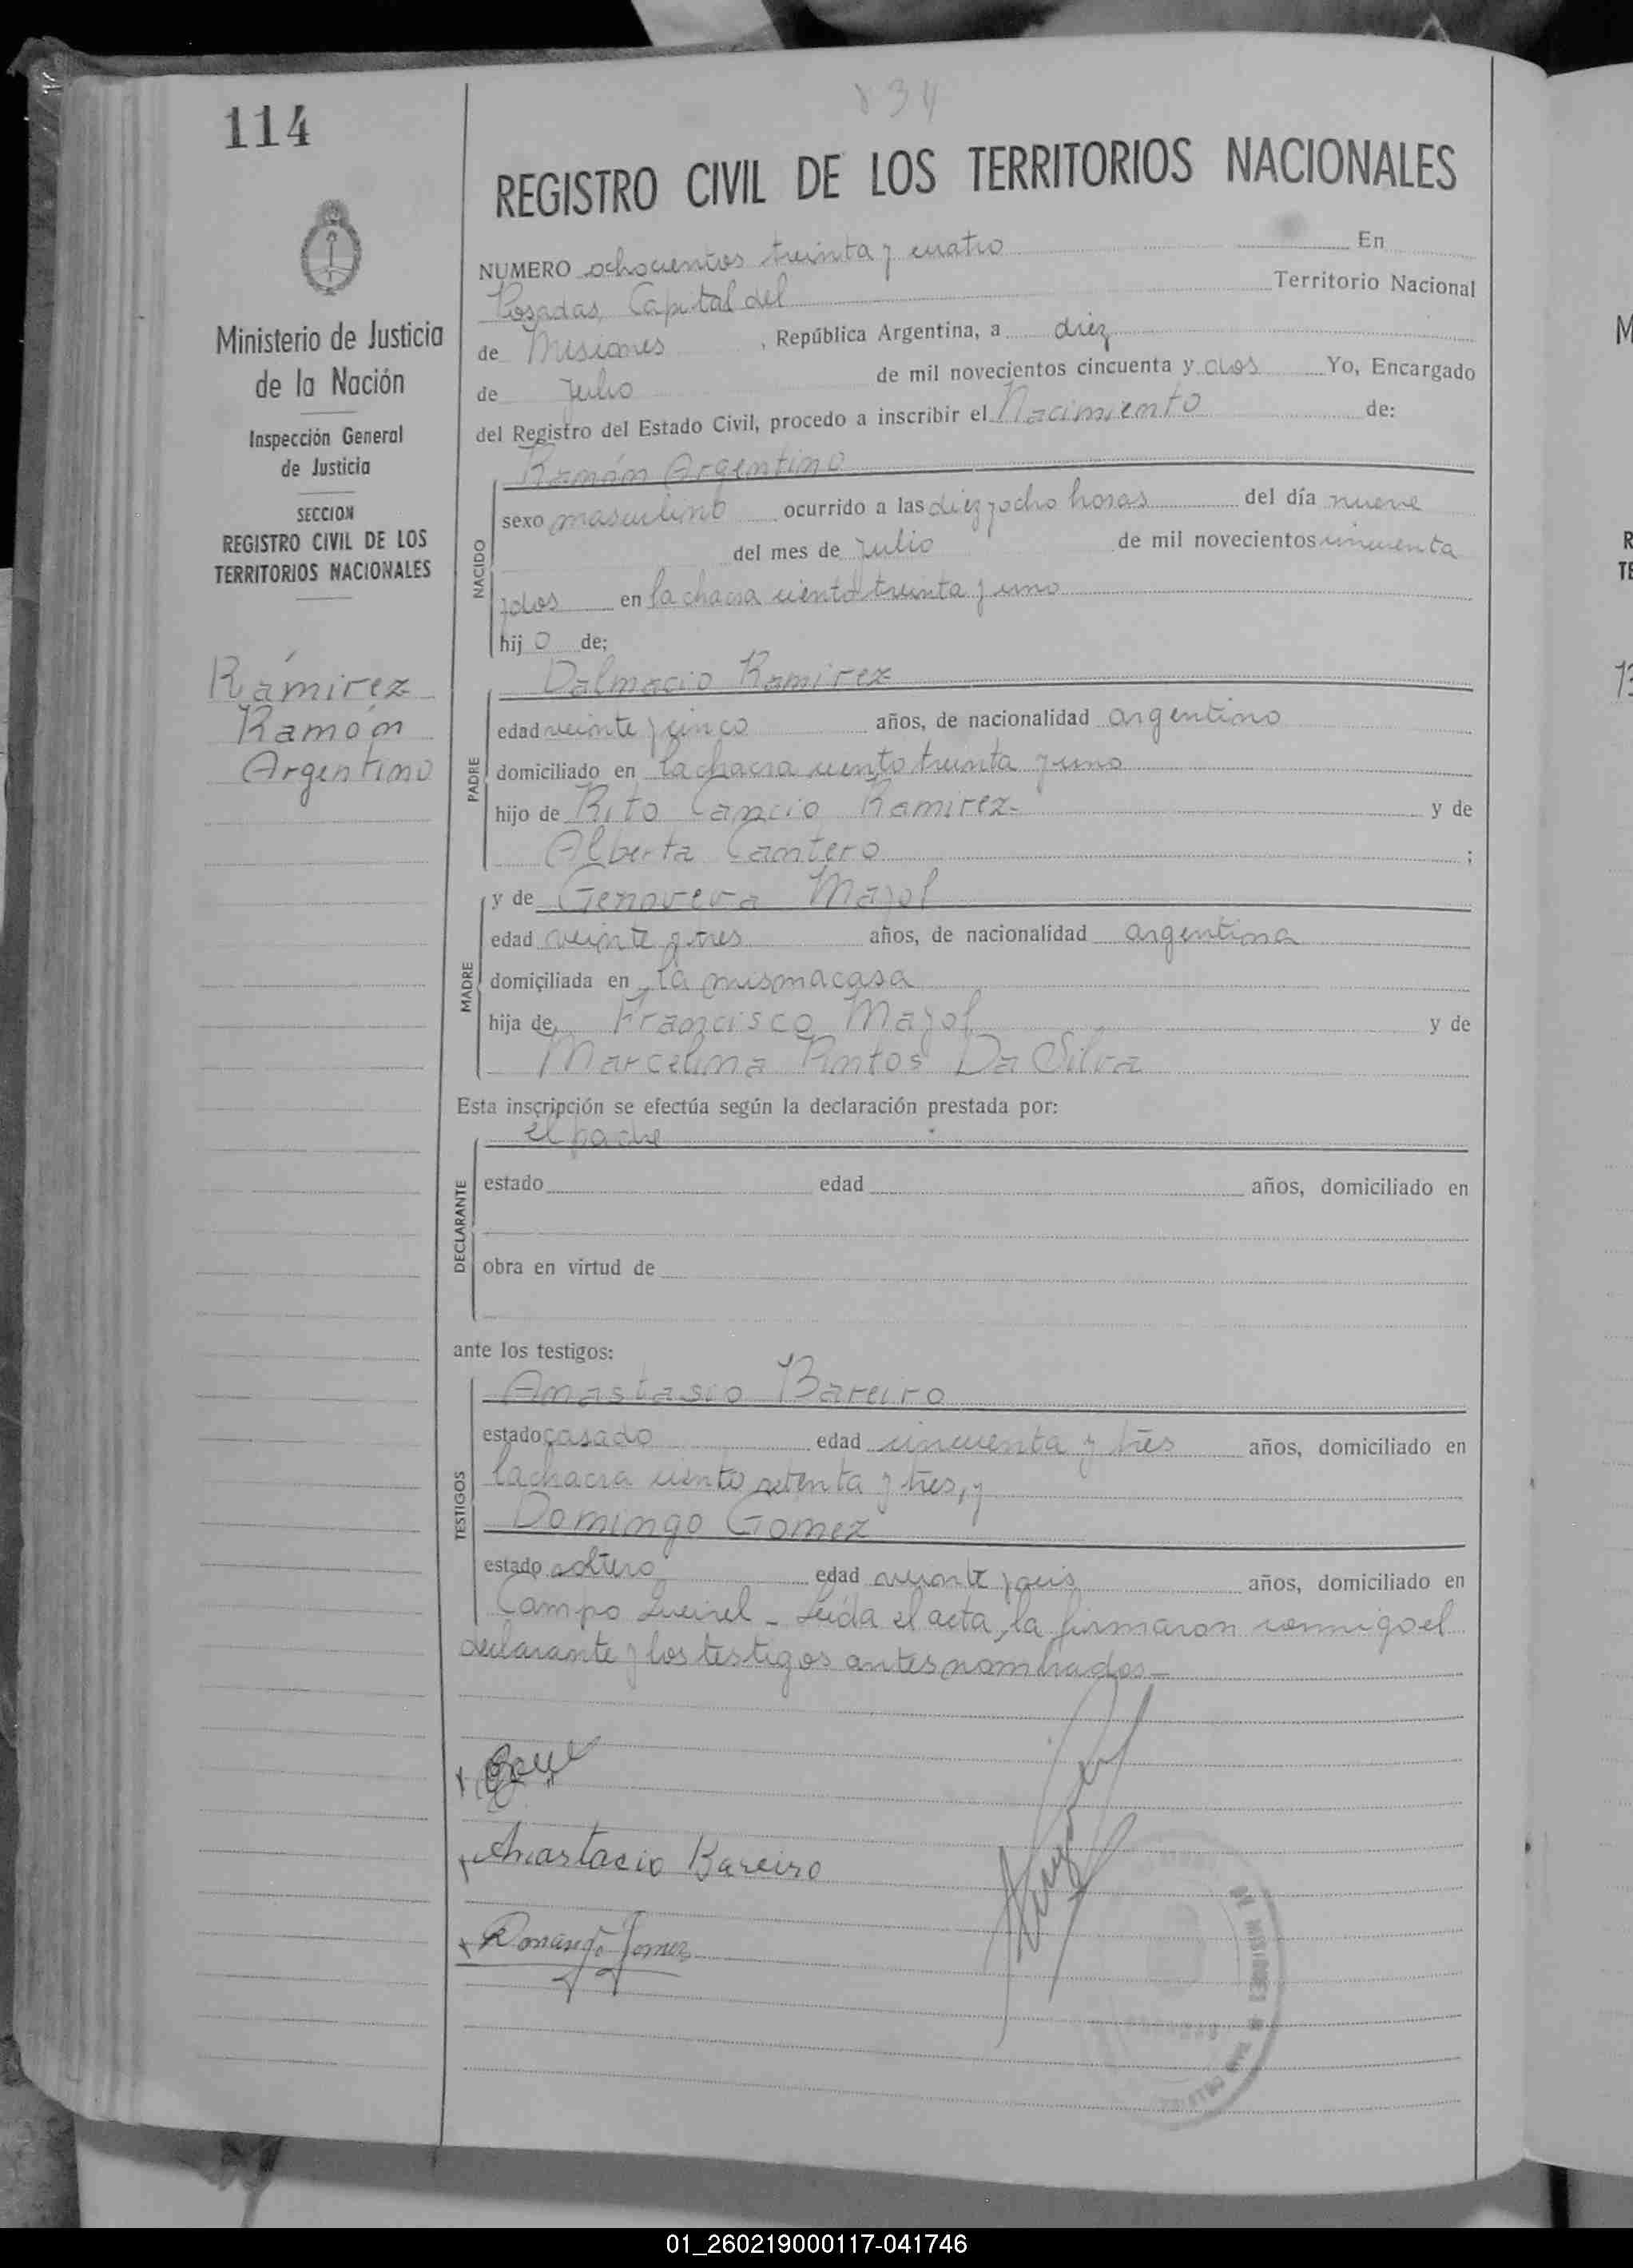 114
834
REGISTRO CIVIL DE LOS TERRITORIOS NACIONALES
Ministerio de Justicia
de la Nación
Inspección General
de Justicia
SECCION
REGISTRO CIVIL DE LOS
TERRITORIOS NACIONALES
Ramírez
Ramón
Argentino
NUMERO ochocientos treinta y cuatro En
Posadas, Capital del Territorio Nacional
de Misiones, República Argentina, a diez
de Julio de mil novecientos cincuenta y dos Yo, Encargado
del Registro del Estado Civil, procedo a inscribir el Nacimiento de:
NACIDO
Ramón Argentino
sexo masculino ocurrido a las diez y ocho horas del día nueve
del mes de Julio de mil novecientos cincuenta
y dos en la chacra ciento treinta y uno
hij o de;
PADRE
Dalmacio Ramirez
edad veinte y cinco años, de nacionalidad argentino
domiciliado en la chacra ciento treinta y uno
hijo de Rito Cancio Ramirez- y de
Alberta Cantero ;
MADRE
y de Genoveva Mayol
edad veinte y tres años, de nacionalidad argentina
domiciliada en la misma casa
hija de Francisco Mayol y de
Marcelina Pintos Da Silva
Esta inscripción se efectúa según la declaración prestada por:
DECLARANTE
el padre
estado edad años, domiciliado en
obra en virtud de
ante los testigos:
TESTIGOS
Anastasio Bareiro
estado casado edad cincuenta y tres años, domiciliado en
la chacra ciento setenta y tres, y
Domingo Gomez
estado soltero edad veinte y seis años, domiciliado en
Campo - Leída el acta, la firmaron conmigo el
declarante y los testigos antes nombrados-
Anastacio Bareiro
Domingo Gomez
DE MISIONES
01_260219000117-041746